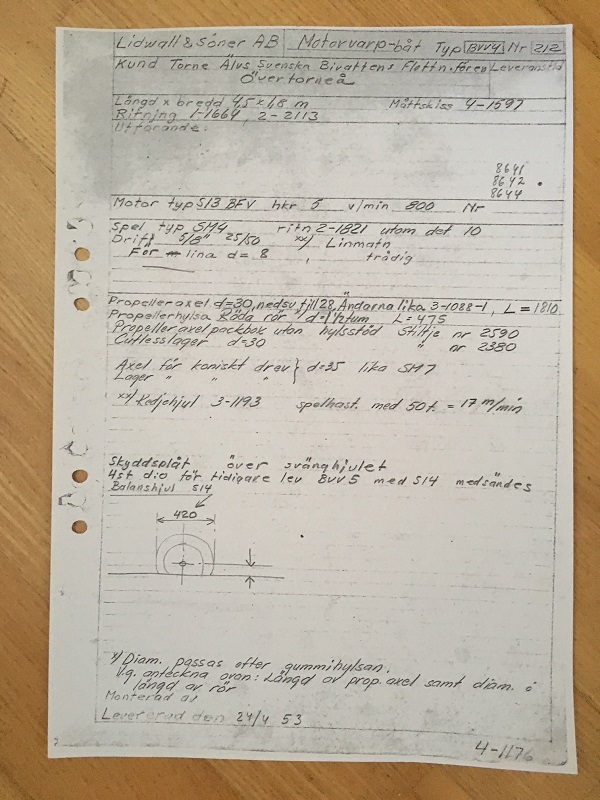 Lidwall & Söner AB Motorvarp-båt Typ BVV4 Nr 212
Kund Torne Älvs Svenska Bivattens Flottn.fören Leveranstid
Övertorneå
Längd x bredd 4,5 x 1,8 m Måttskiss 4-1597
Ritning 1-1664, 2-2113
Utförande:
8641
8642
8644
Motor typ S13 BFV hkr 5 v/min 800 Nr
Spel typ SM4 ritn 2-1821 utom det 10
Drift 5/8" 25/50 xx/ Linmatn
För lina d= 8 , trådig
Propelleraxel d=30, nedsv till 28, Ändarna lika 3-1088-1, L = 1810
Propellerhylsa Röda rör d=1½tum L= 475
Propelleraxelpackbox utan hylsstöd Stiltje nr 2590
Cutlesslager d=30 " nr 2380
Axel för koniskt drev } d=35 lika SM7
Lager " " "
xx/ Kedjehjul 3-1193 spelhast. med 50t. = 17 m/min
Skyddsplåt över svänghjulet
4st d:o för tidigare lev BVV5 med S14 medsändes
Balanshjul S14
420
x/ Diam. passas efter gummihylsan.
V.g. anteckna ovan: Längd av prop.axel samt diam. o
längd av rör
Monterad av
Levererad den 24/4 53
4-1176